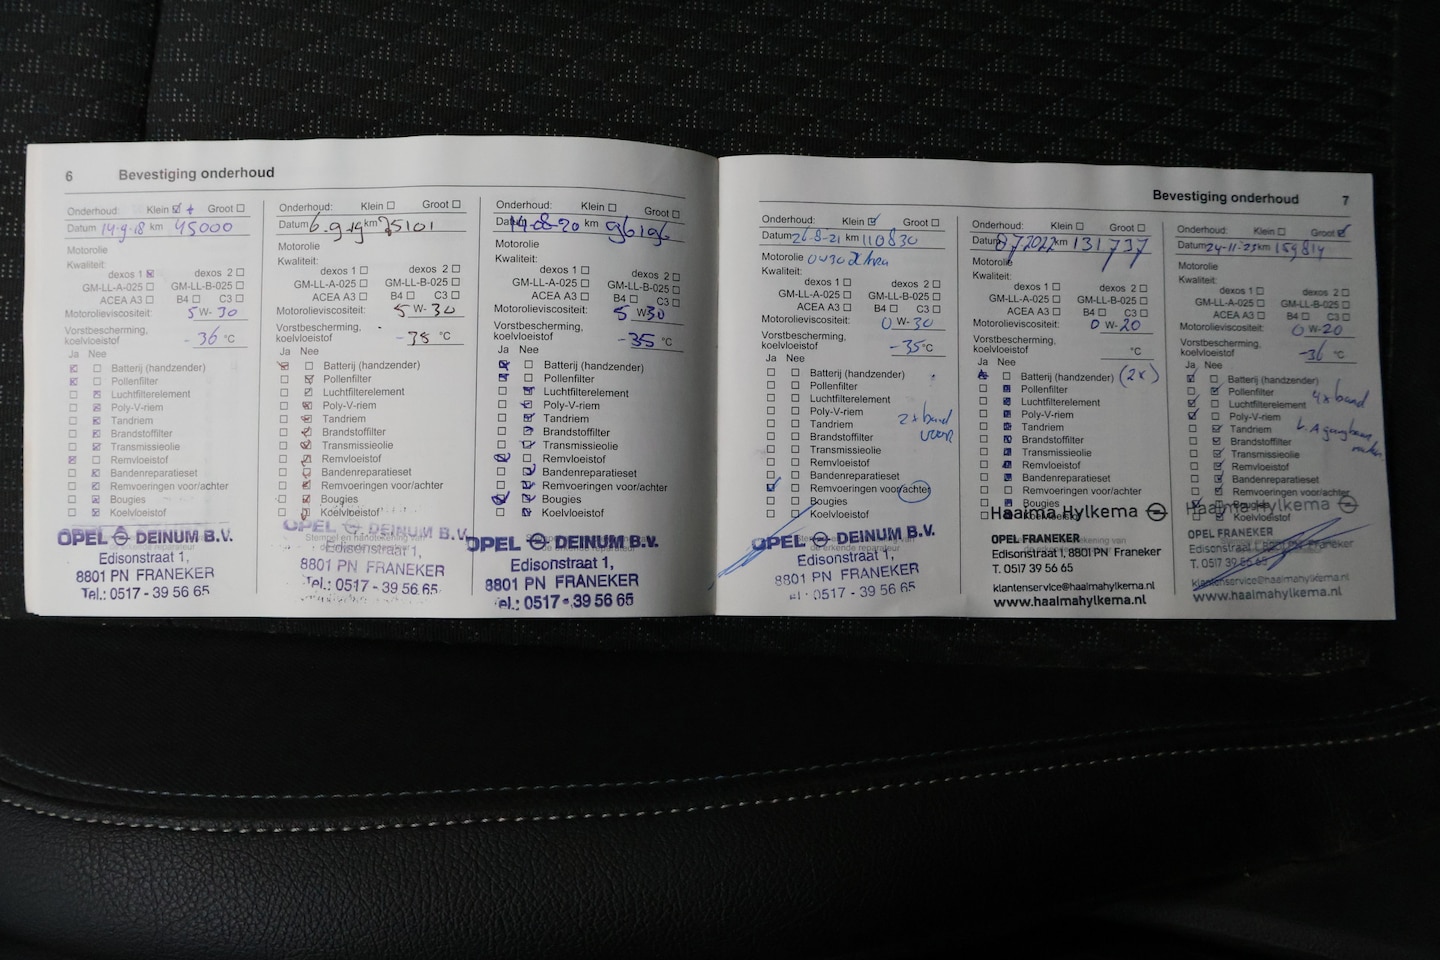 6 Bevestiging onderhoud
Onderhoud: Klein ☑ + Groot ☐
Datum 14-9-18 km 45000
Motorolie
Kwaliteit:
dexos 1 ☒ dexos 2 ☐
GM-LL-A-025 ☐ GM-LL-B-025 ☐
ACEA A3 ☐ B4 ☐ C3 ☐
Motorolieviscositeit: 5 W- 30
Vorstbescherming,
koelvloeistof - 36 °C
Ja Nee
Batterij (handzender)
Pollenfilter
Luchtfilterelement
Poly-V-riem
Tandriem
Brandstoffilter
Transmissieolie
Remvloeistof
Bandenreparatieset
Remvoeringen voor/achter
Bougies
Koelvloeistof
OPEL DEINUM B.V.
Edisonstraat 1,
8801 PN FRANEKER
Tel.: 0517 - 39 56 65
Onderhoud: Klein ☐ Groot ☐
Datum 6-9-19 km 75101
Motorolie
Kwaliteit:
dexos 1 ☐ dexos 2 ☐
GM-LL-A-025 ☐ GM-LL-B-025 ☐
ACEA A3 ☐ B4 ☐ C3 ☐
Motorolieviscositeit: 5 W- 30
Vorstbescherming,
koelvloeistof -38 °C
Ja Nee
Batterij (handzender)
Pollenfilter
Luchtfilterelement
Poly-V-riem
Tandriem
Brandstoffilter
Transmissieolie
Remvloeistof
Bandenreparatieset
Remvoeringen voor/achter
Bougies
Koelvloeistof
OPEL DEINUM B.V.
Edisonstraat 1,
8801 PN FRANEKER
Tel.: 0517 - 39 56 65
Onderhoud: Klein ☐ Groot ☐
Datum 14-08-20 km 96196
Motorolie
Kwaliteit:
dexos 1 ☐ dexos 2 ☐
GM-LL-A-025 ☐ GM-LL-B-025 ☐
ACEA A3 ☐ B4 ☐ C3 ☐
Motorolieviscositeit: 5 W 30
Vorstbescherming,
koelvloeistof -35 °C
Ja Nee
Batterij (handzender)
Pollenfilter
Luchtfilterelement
Poly-V-riem
Tandriem
Brandstoffilter
Transmissieolie
Remvloeistof
Bandenreparatieset
Remvoeringen voor/achter
Bougies
Koelvloeistof
OPEL DEINUM B.V.
Edisonstraat 1,
8801 PN FRANEKER
Tel.: 0517 - 39 56 65
Bevestiging onderhoud 7
Onderhoud: Klein ☑ Groot ☐
Datum 26-8-21 km 110830
Motorolie 0W30
Kwaliteit:
dexos 1 ☐ dexos 2 ☐
GM-LL-A-025 ☐ GM-LL-B-025 ☐
ACEA A3 ☐ B4 ☐ C3 ☐
Motorolieviscositeit: 0 W- 30
Vorstbescherming,
koelvloeistof -35 °C
Ja Nee
Batterij (handzender)
Pollenfilter
Luchtfilterelement
Poly-V-riem 2x band
Tandriem voor
Brandstoffilter
Transmissieolie
Remvloeistof
Bandenreparatieset
Remvoeringen voor/achter
Bougies
Koelvloeistof
OPEL DEINUM B.V.
Edisonstraat 1,
8801 PN FRANEKER
0517 - 39 56 65
Onderhoud: Klein ☐ Groot ☐
Datum 8 7 2022 km 131737
Motorolie
Kwaliteit:
dexos 1 ☐ dexos 2 ☐
GM-LL-A-025 ☐ GM-LL-B-025 ☐
ACEA A3 ☐ B4 ☐ C3 ☐
Motorolieviscositeit: 0 W- 20
Vorstbescherming,
koelvloeistof °C
Ja Nee
Batterij (handzender) (2x)
Pollenfilter
Luchtfilterelement
Poly-V-riem
Tandriem
Brandstoffilter
Transmissieolie
Remvloeistof
Bandenreparatieset
Remvoeringen voor/achter
Bougies
Koelvloeistof
Haalma Hylkema
OPEL FRANEKER
Edisonstraat 1, 8801 PN Franeker
T. 0517 39 56 65
klantenservice@haalmahylkema.nl
www.haalmahylkema.nl
Onderhoud: Klein ☐ Groot ☑
Datum 24-11-23 km 159814
Motorolie
Kwaliteit:
dexos 1 ☐ dexos 2 ☐
GM-LL-A-025 ☐ GM-LL-B-025 ☐
ACEA A3 ☐ B4 ☐ C3 ☐
Motorolieviscositeit: 0 W-20
Vorstbescherming,
koelvloeistof -36 °C
Ja Nee
Batterij (handzender)
Pollenfilter 4x band
Luchtfilterelement
Poly-V-riem
Tandriem
Brandstoffilter
Transmissieolie
Remvloeistof
Bandenreparatieset
Remvoeringen voor/achter
Bougies
Koelvloeistof
Haalma Hylkema
OPEL FRANEKER
Edisonstraat
T. 0517 39 56 65
klantenservice@haalmahylkema.nl
www.haalmahylkema.nl